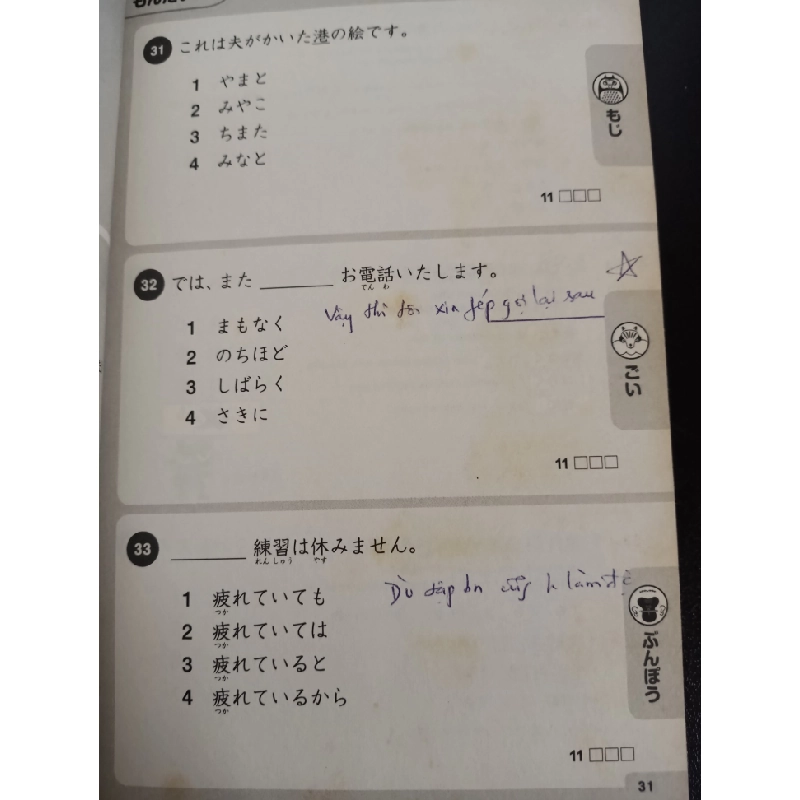 31 これは夫がかいた港の絵です。
1 やまと
2 みやこ
3 ちまた
4 みなと
もじ
11 □□□
32 では、また ______ お電話いたします。
でん わ
Vậy thì tôi xin phép gọi lại sau
1 まもなく
2 のちほど
3 しばらく
4 さきに
ごい
11 □□□
33 ______ 練習は休みません。
れんしゅう やす
1 疲れていても
つか
2 疲れていては
つか
3 疲れていると
つか
4 疲れているから
つか
Dù
ぶんぽう
11 □□□
31